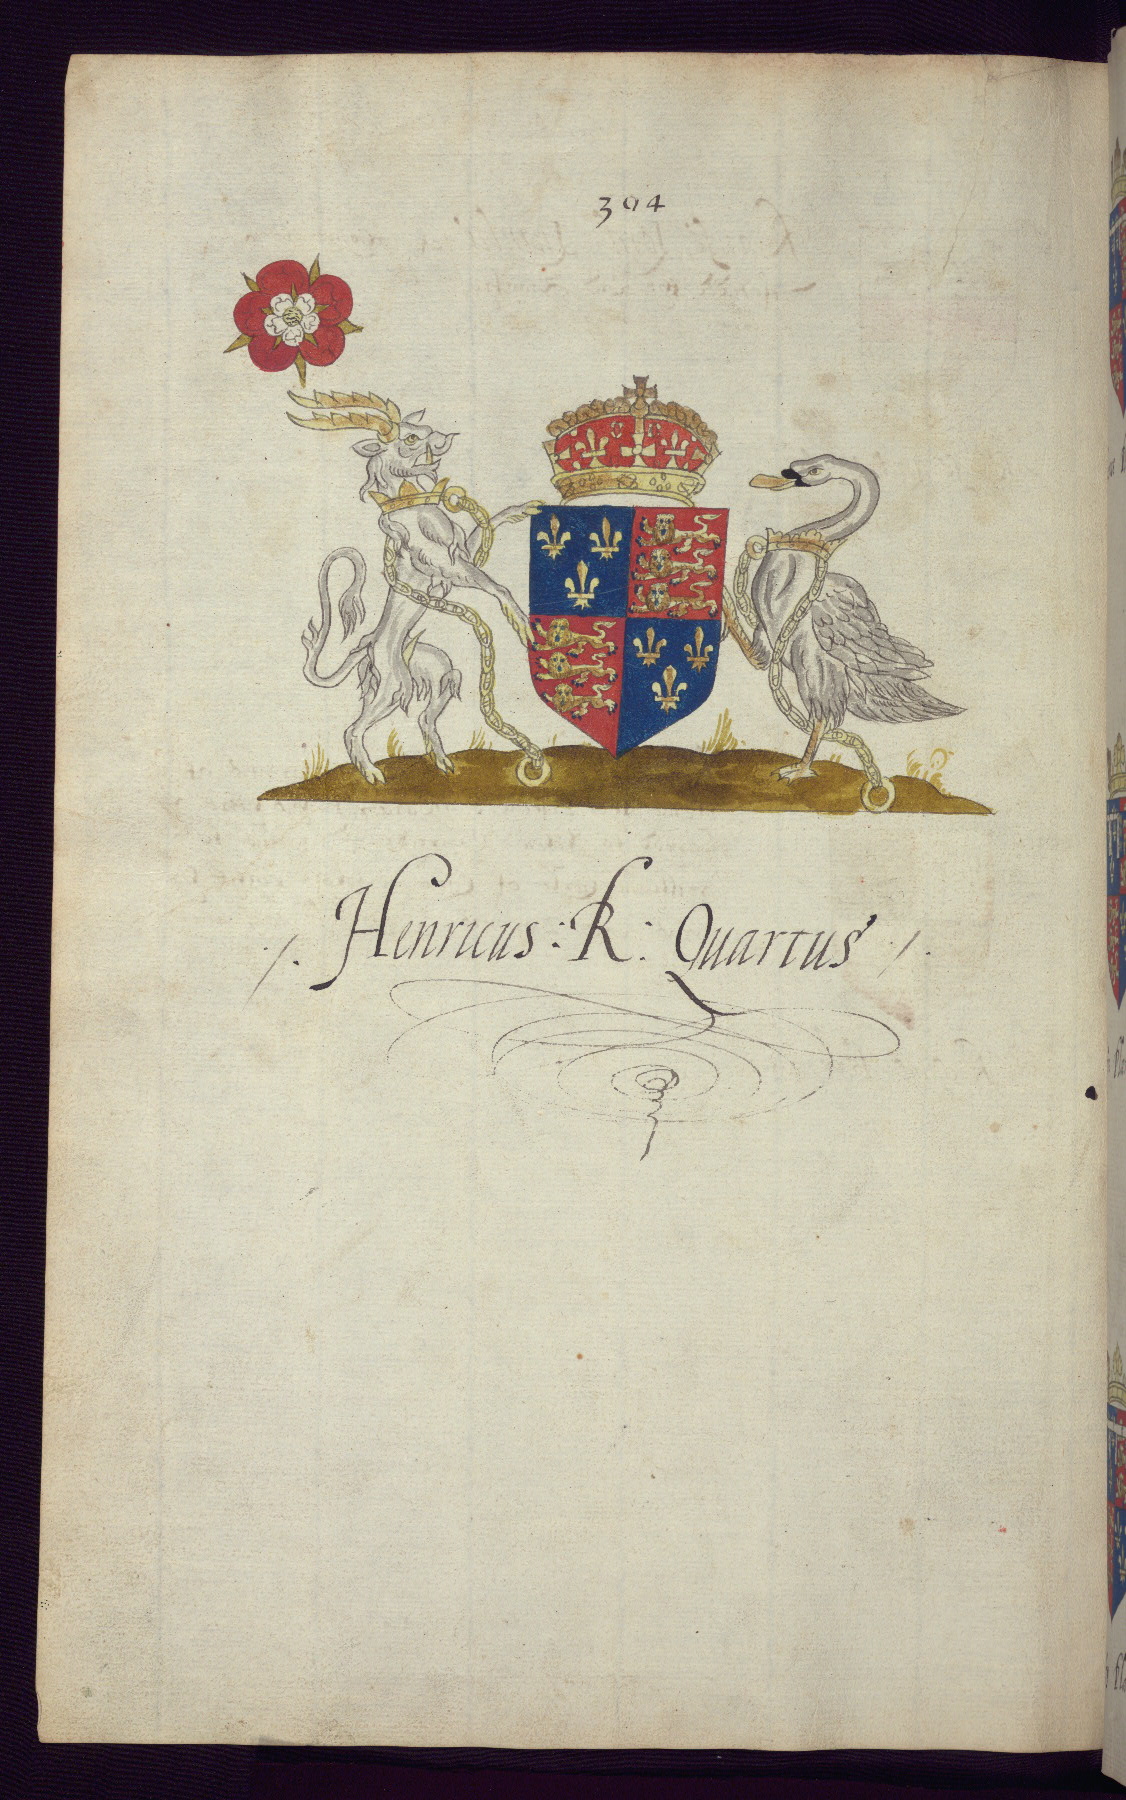 394
./. Henricus : R : Quartus ./.